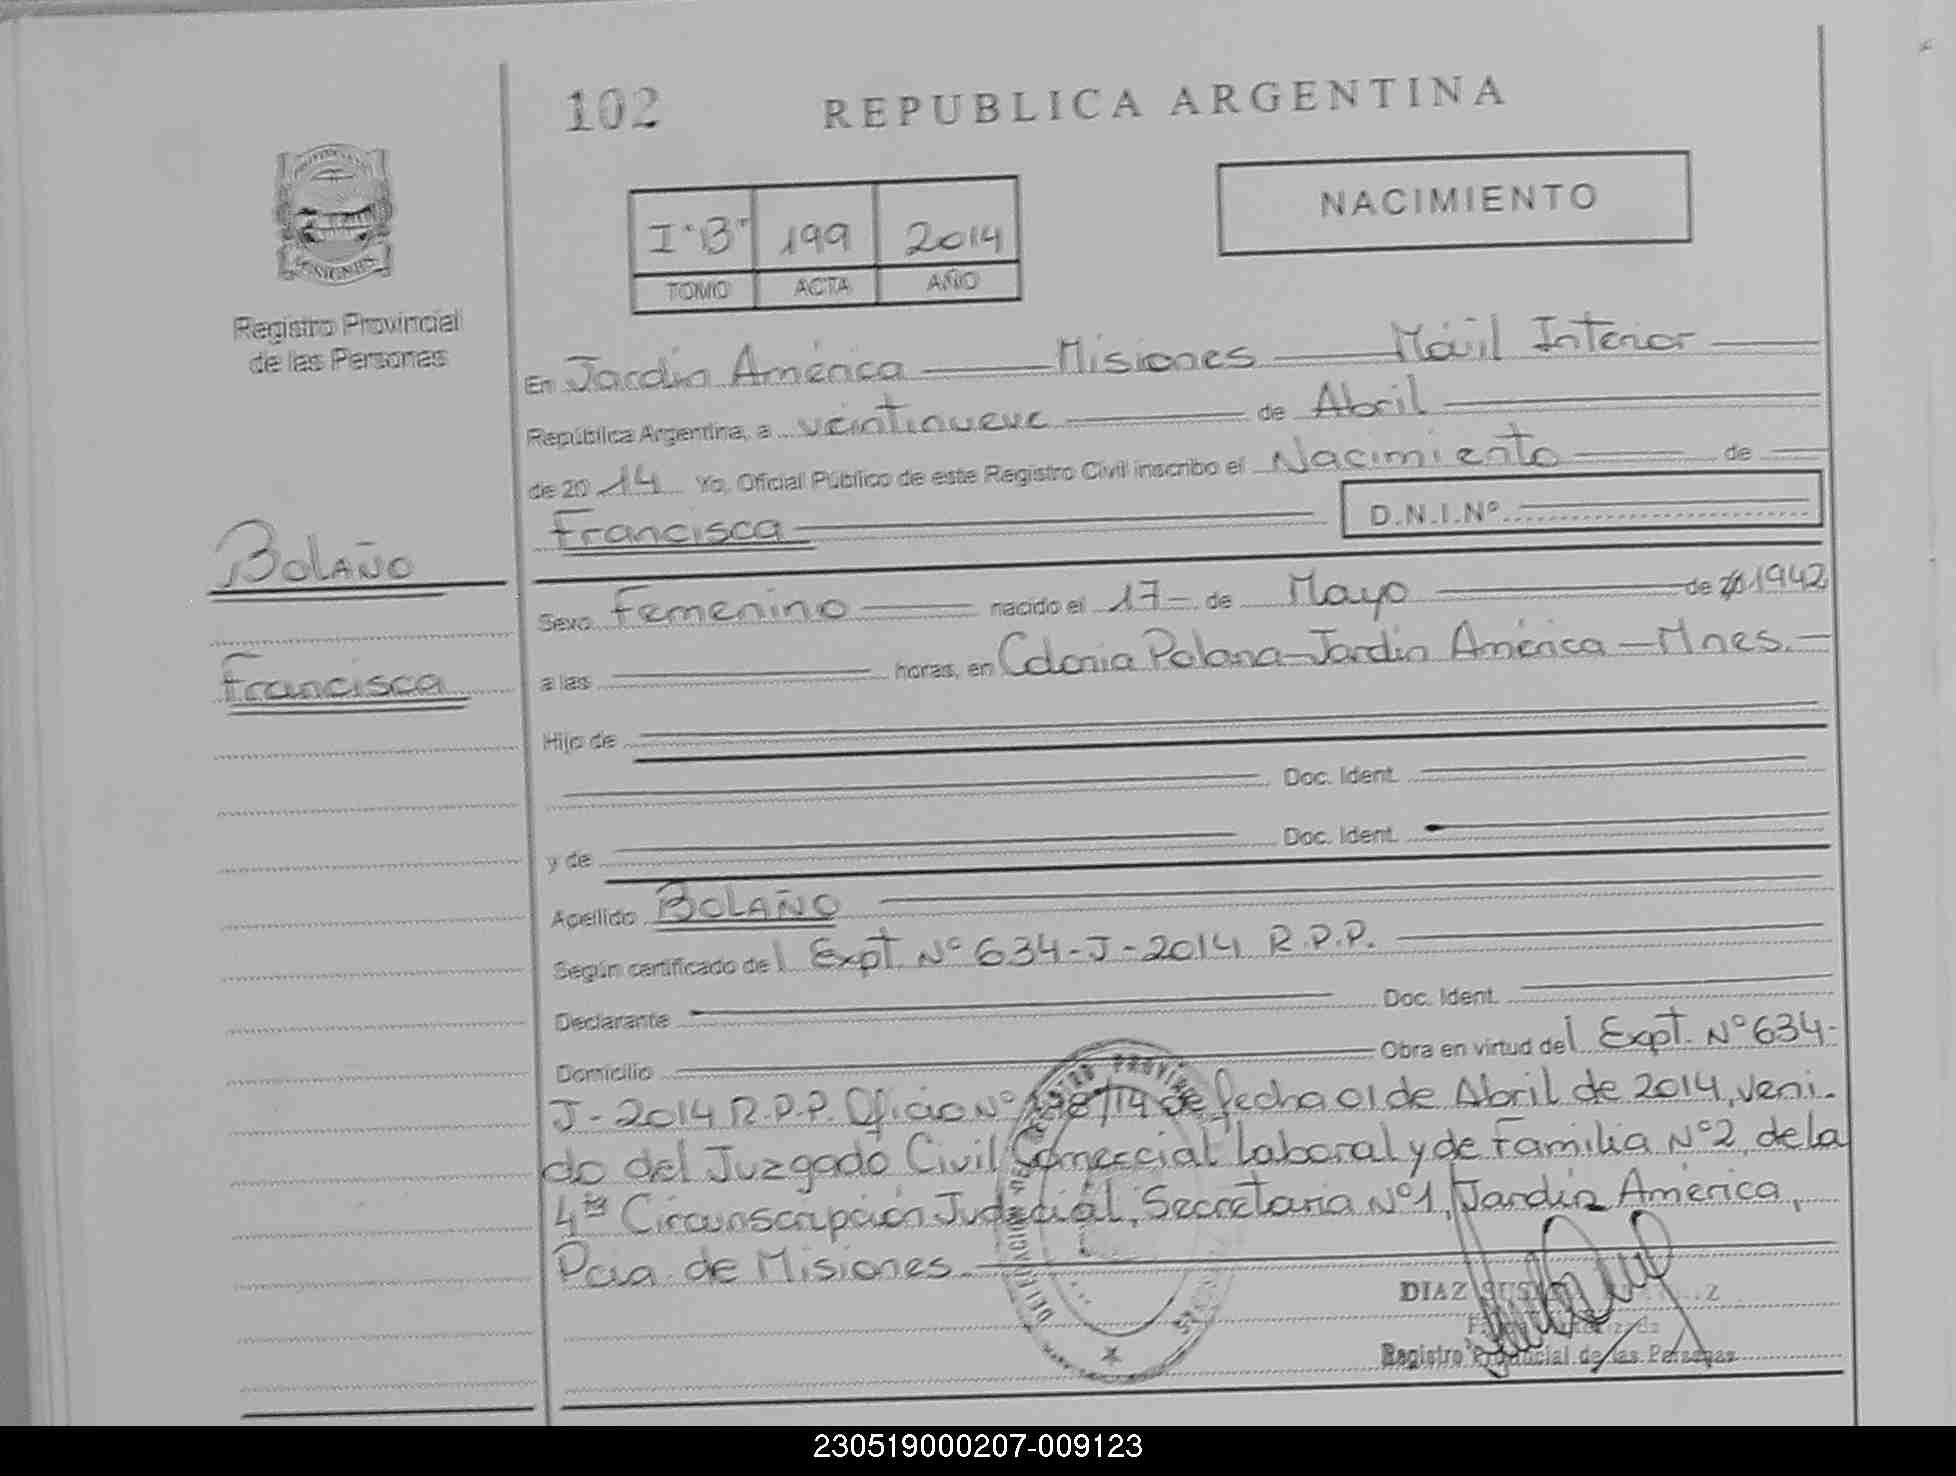 102 REPUBLICA ARGENTINA
PROVINCIA DE MISIONES
Registro Provincial
de las Personas
I "B" 199 2014
TOMO ACTA AÑO
NACIMIENTO
En Jardín América Misiones Móvil Interior
República Argentina, a veintinueve de Abril
de 20 14 Yo, Oficial Público de este Registro Civil inscribo el Nacimiento de
Francisca D.N.I.Nº
BOLAÑO
Francisca
Sexo Femenino nacido el 17 de Mayo de 1942
a las horas, en Colonia Polana-Jardín América-Mnes.
Hijo de
Doc. Ident.
y de Doc. Ident.
Apellido BOLAÑO
Según certificado del Expt. Nº 634-J-2014 R.P.P.
Declarante Doc. Ident.
Domicilio Obra en virtud del Expt. Nº 634-
J-2014 R.P.P. Oficio Nº /14 de fecha 01 de Abril de 2014, veni-
do del Juzgado Civil Comercial Laboral y de Familia Nº 2, de la
4ta Circunscripción Judicial, Secretaria Nº 1, Jardín América,
Pcia. de Misiones.
DIAZ
Registro Provincial de las Personas
230519000207-009123